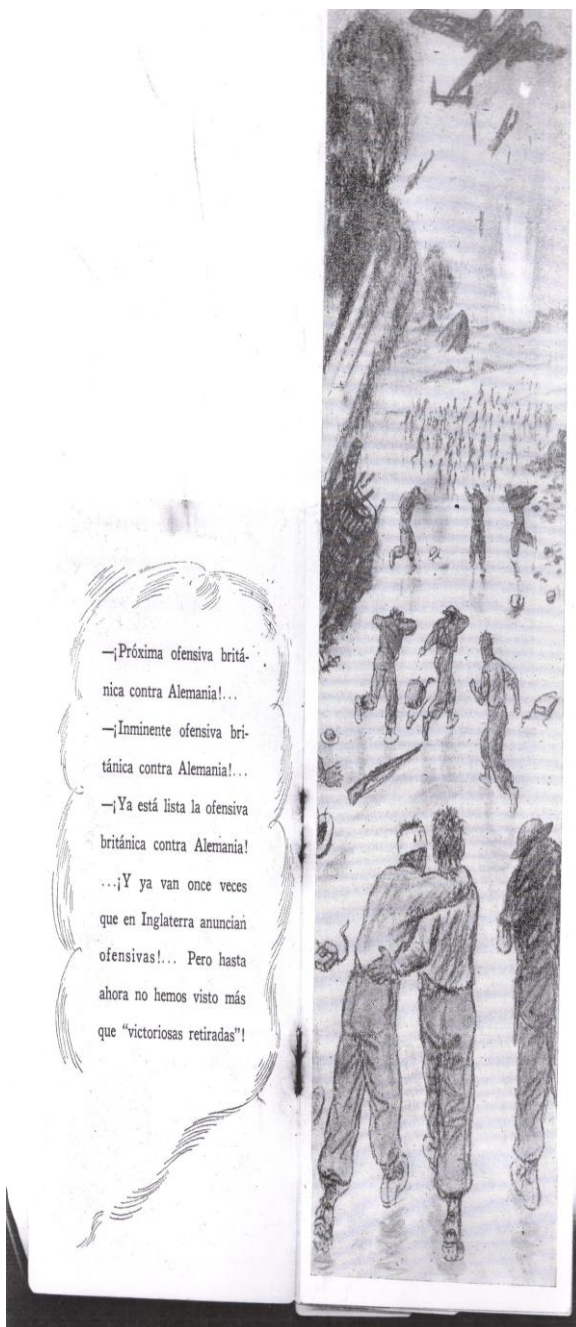 —¡Próxima ofensiva britá-
nica contra Alemania!...
—¡Inminente ofensiva bri-
tánica contra Alemania!...
—¡Ya está lista la ofensiva
británica contra Alemania!
...¡Y ya van once veces
que en Inglaterra anuncian
ofensivas!... Pero hasta
ahora no hemos visto más
que “victoriosas retiradas”!